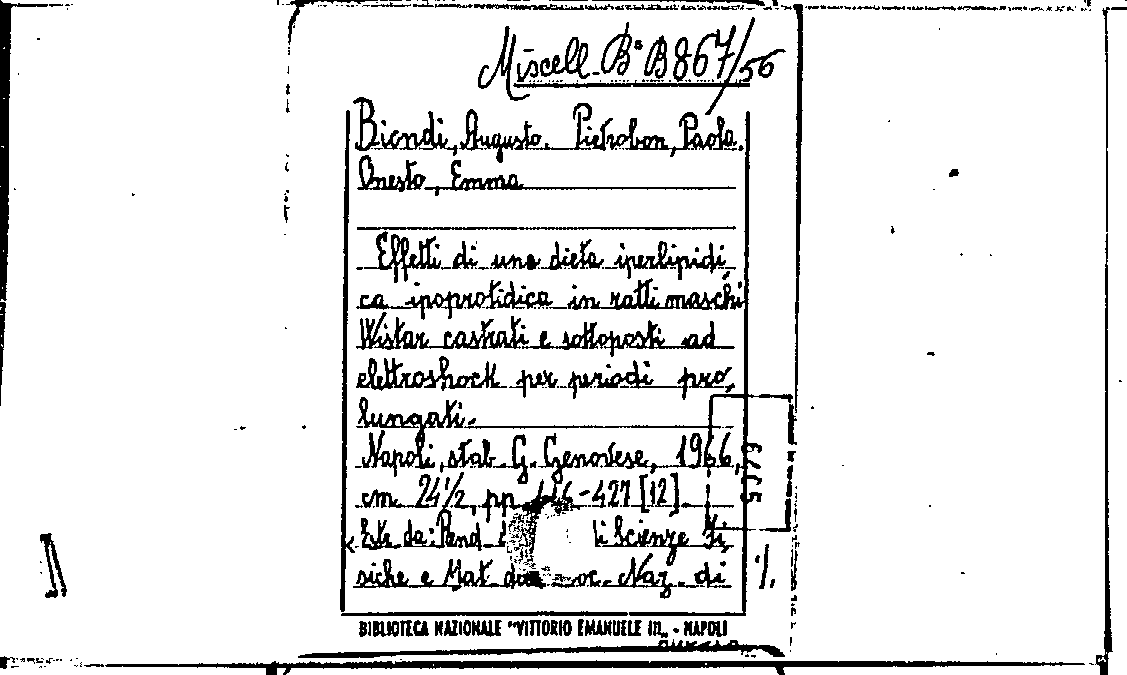 Miscell. Bª B 867/56
Biondi, Augusto. Pietrobon, Paola.
Onesto, Emma
Effetti di una dieta iperlipidi
ca ipoprotidica in ratti maschi
Wistar castrati e sottoposti ad
elettroshock per periodi pro,
lungati.
Napoli, stab. G. Genovese, 1966,
cm. 24½, pp. 416-427 [12].
Estr. da: Rend. di Scienze Fi
siche e Mat. Soc. Naz. di
./.
BIBLIOTECA NAZIONALE "VITTORIO EMANUELE III„ - NAPOLI